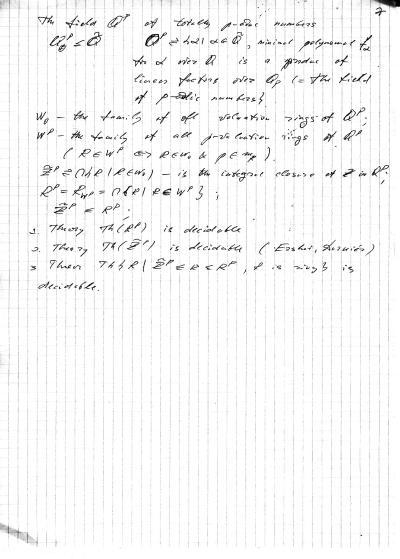 7
The field Q^p of totally p-adic numbers
Q^p ≤ Q̃   Q^p ⇌ {α | α ∈ Q̃, minimal polynomial f_α
for α over Q is a product of
linear factors over Q_p (= the field
of p-adic numbers)}
W_0 - the family of all valuation rings of Q^p;
W^p - the family of all p-valuation rings of Q^p
(R ∈ W^p ⇔ R ∈ W_0 & p ∈ m_R).
Z̃^p ⇌ ∩{R | R ∈ W_0} - is the integral closure of Z in Q^p;
R^p = R_{W^p} = ∩{R | R ∈ W^p};
Z̃^p ≤ R^p;
1. Theory Th(R^p) is decidable
2. Theory Th(Z̃^p) is decidable (Ershov,
3 Theory Th{R | Z̃^p ≤ R ≤ R^p, R is ring} is
decidable.